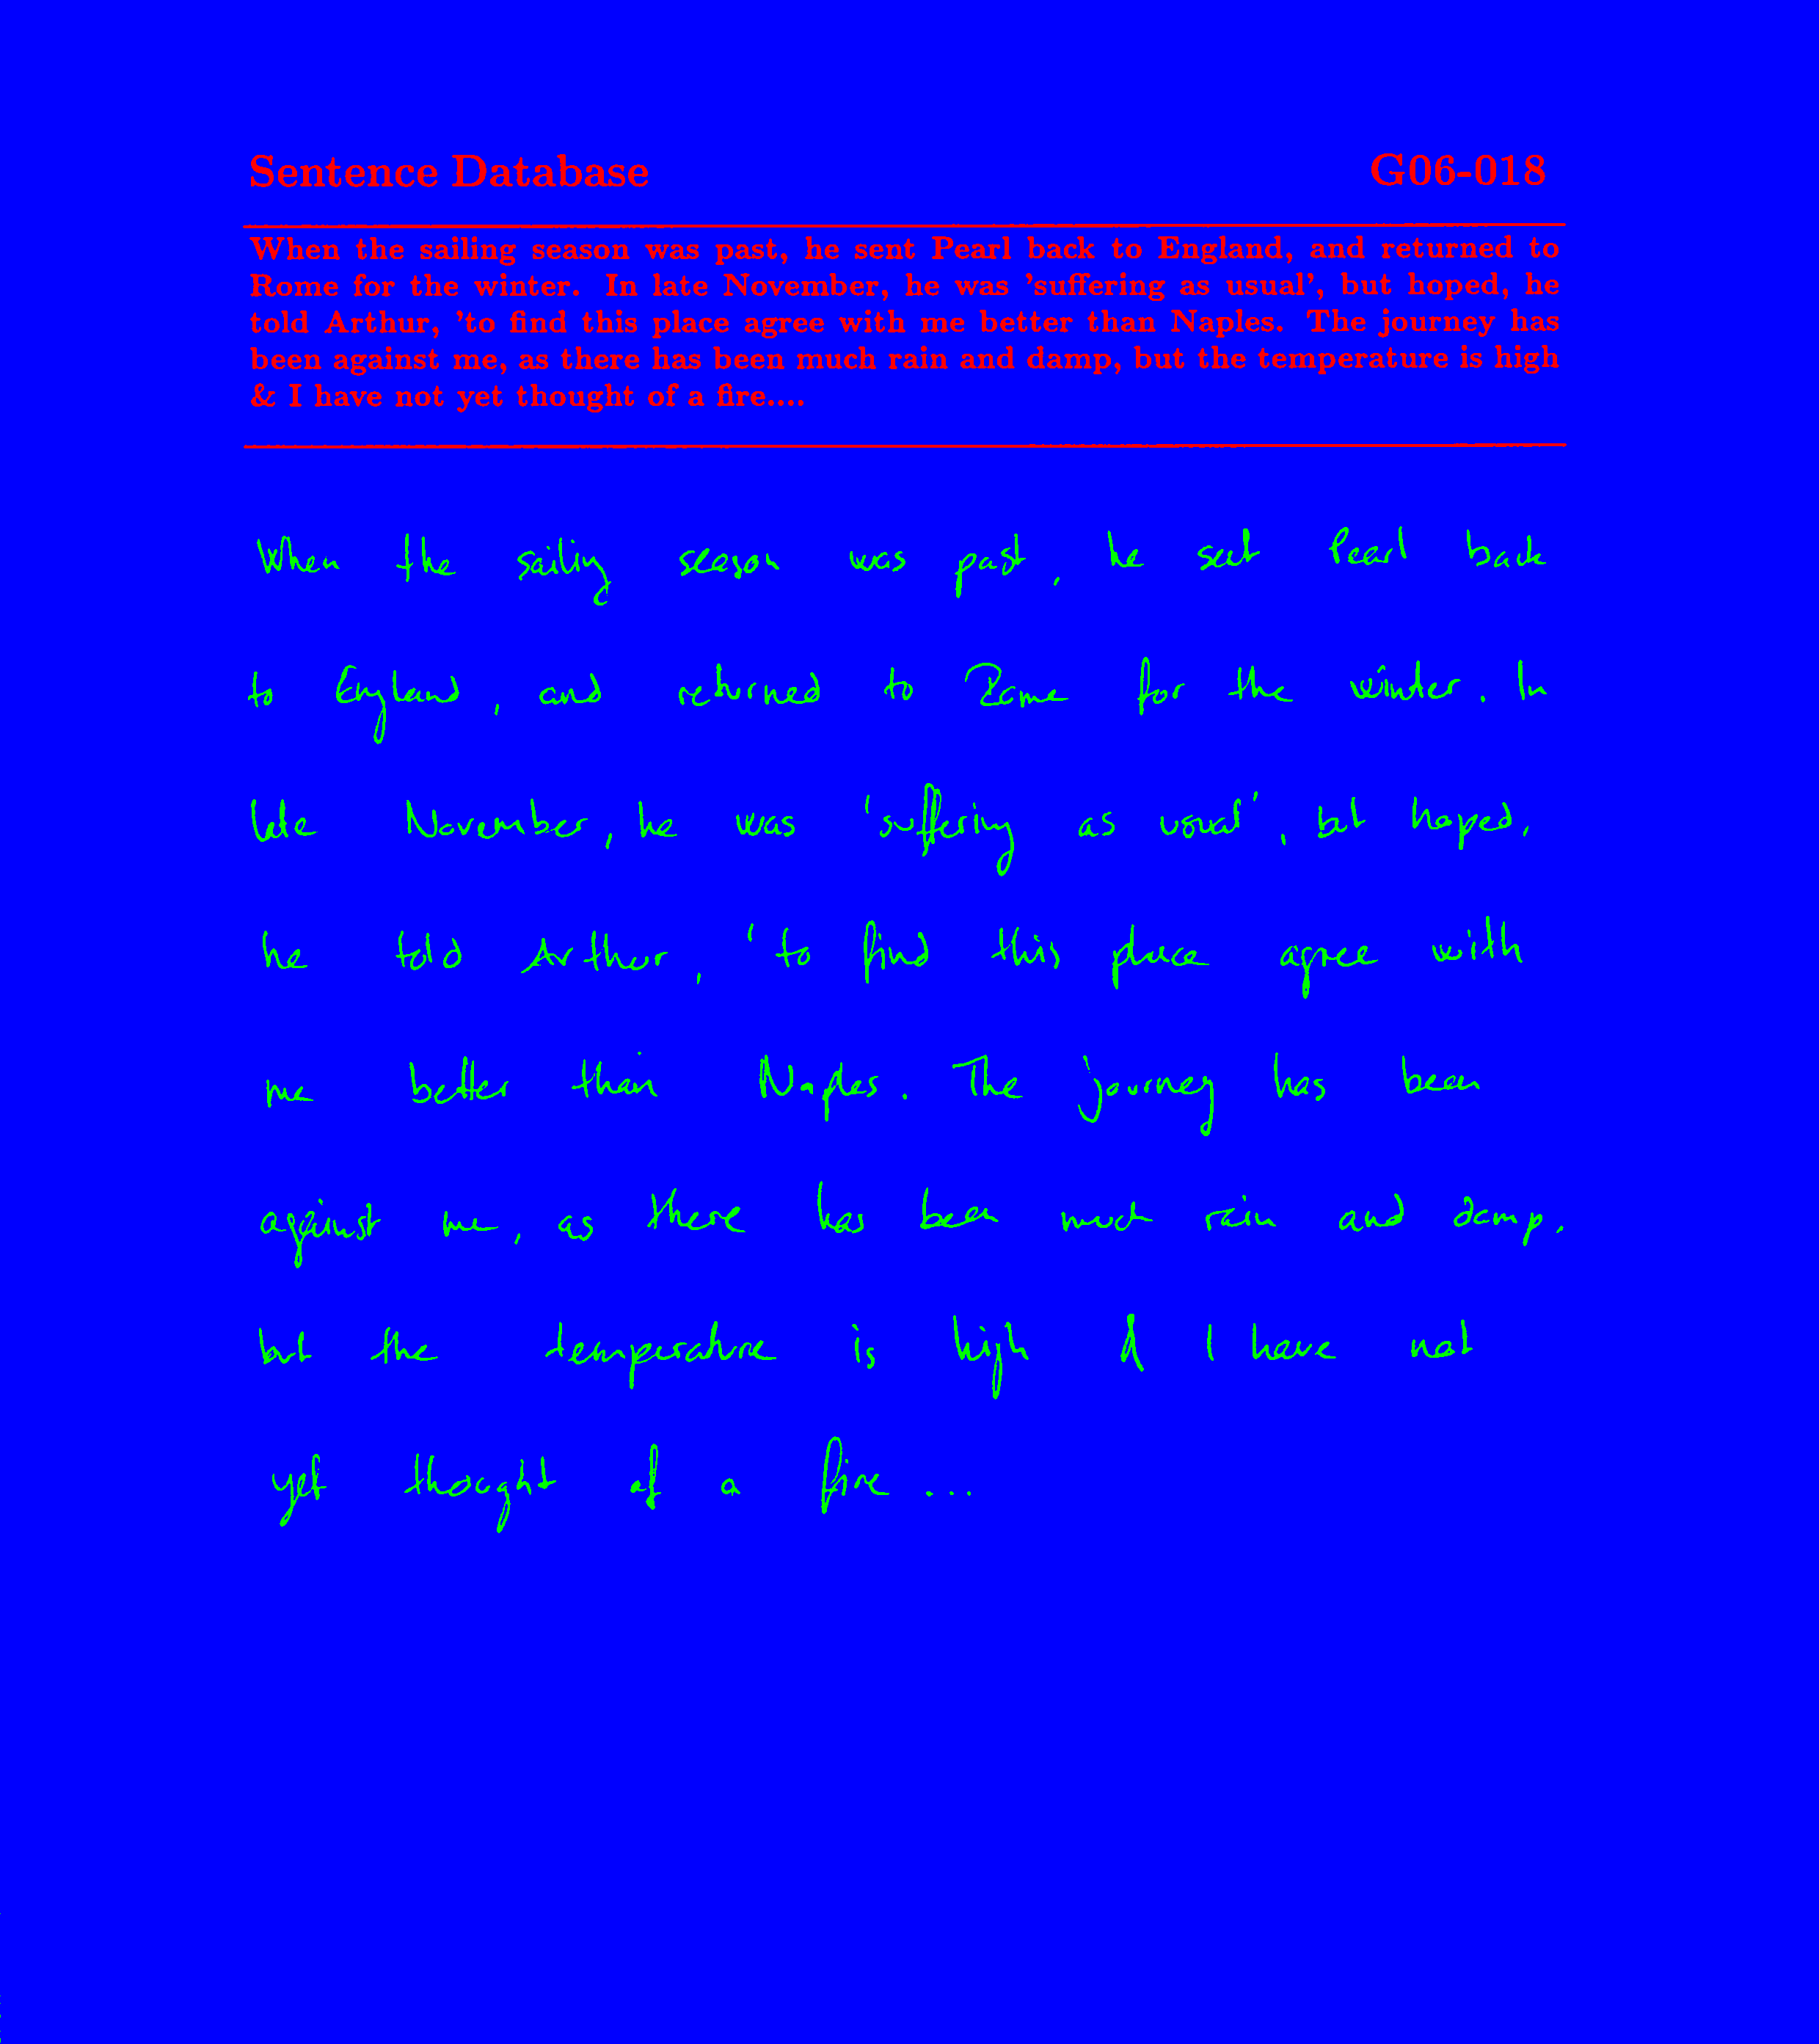 Sentence Database G06-018
When the sailing season was past, he sent Pearl back to England, and returned to
Rome for the winter. In late November, he was 'suffering as usual', but hoped, he
told Arthur, 'to find this place agree with me better than Naples. The journey has
been against me, as there has been much rain and damp, but the temperature is high
& I have not yet thought of a fire....
When the sailing season was past, he sent Pearl back
to England, and returned to Rome for the winter. In
late November, he was 'suffering as usual', but hoped,
he told Arthur, 'to find this place agree with
me better than Naples. The journey has been
against me, as there has been much rain and damp,
but the temperature is high & I have not
yet thought of a fire...